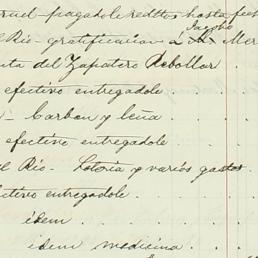 pagadole redttos hasta fech
Jacobo
el Rio - gratificacion á Mer
nta del Zapatero Rebollar
efectivo entregadole .
- Carbon y leña .
efectivo entregadole .
el Rio. Loteria y varios gastos .
efectivo entregadole .
idem .
idem medicina .